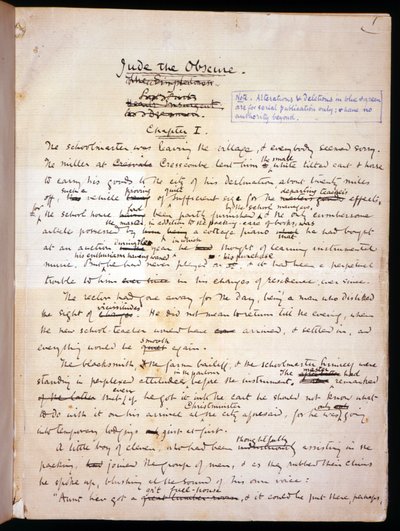 1
Jude the Obscure.
The Simpletons
Hearts Insurgent
Note. Alterations & deletions in blue & green
are for serial publication only; & have no
authority beyond.
Chapter I.
The schoolmaster was leaving the village, & everybody seemed sorry.
The miller at Cresscombe lent him the small white tilted cart & horse
to carry his goods to the city of his destination about twenty miles
off, such a vehicle proving of quite sufficient size for the departing teacher's effects,
for the school house had been partly furnished by the school managers, & the only cumbersome
article possessed by the master, in addition to the packing-case of books, was a cottage piano that he had bought
at an auction during the year in which he thought of learning instrumental
music. But his enthusiasm having waned he had never played on it, & his purchase had been a perpetual
trouble to him in his changes of residence ever since.
The rector had gone away for the day, being a man who disliked
the sight of changes. He did not mean to return till the evening, when
the new school-teacher would have arrived, & settled in, and
everything would be smooth again.
The blacksmith, the farm bailiff, & the schoolmaster himself were
standing in perplexed attitudes in the parlour before the instrument. The master had remarked
that even if he got it into the cart he should not know what
to do with it on his arrival at Christminster the city aforesaid, for he was only going
into temporary lodgings just at first.
A little boy of eleven, who had been thoughtfully assisting in the
packing, joined the group of men, & as they rubbed their chins
he spoke up, blushing at the sound of his own voice:
"Aunt have got a great fuel-house, & it could be put there, perhaps,